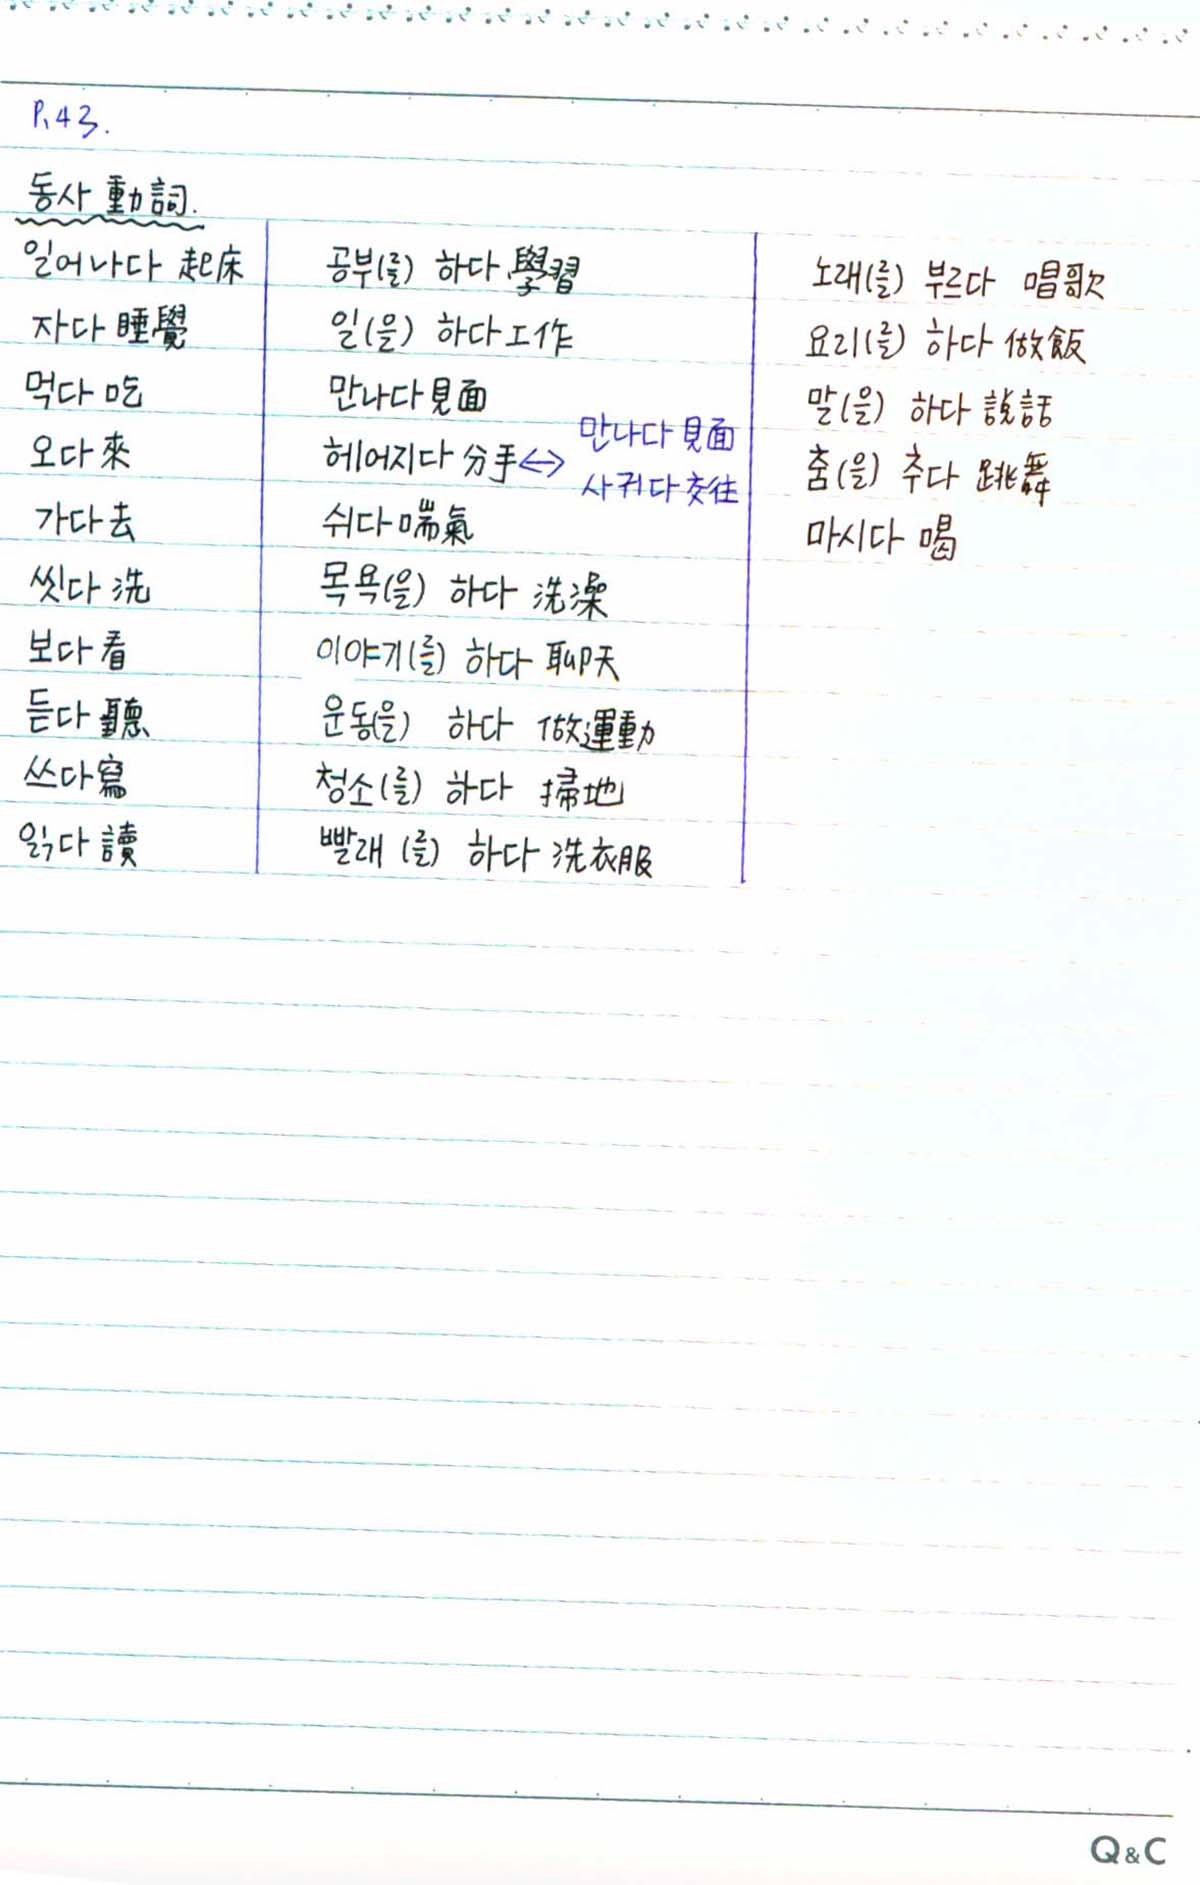 P.43.
동사 動詞.
일어나다 起床
자다 睡覺
먹다 吃
오다 來
가다 去
씻다 洗
보다 看
듣다 聽
쓰다 寫
읽다 讀
공부(를) 하다 學習
일(을) 하다 工作
만나다 見面
헤어지다 分手 ↔ 만나다 見面
사귀다 交往
쉬다 喘氣
목욕(을) 하다 洗澡
이야기(를) 하다 聊天
운동(을) 하다 做運動
청소(를) 하다 掃地
빨래 (를) 하다 洗衣服
노래(를) 부르다 唱歌
요리(를) 하다 做飯
말(을) 하다 說話
춤(을) 추다 跳舞
마시다 喝
Q&C